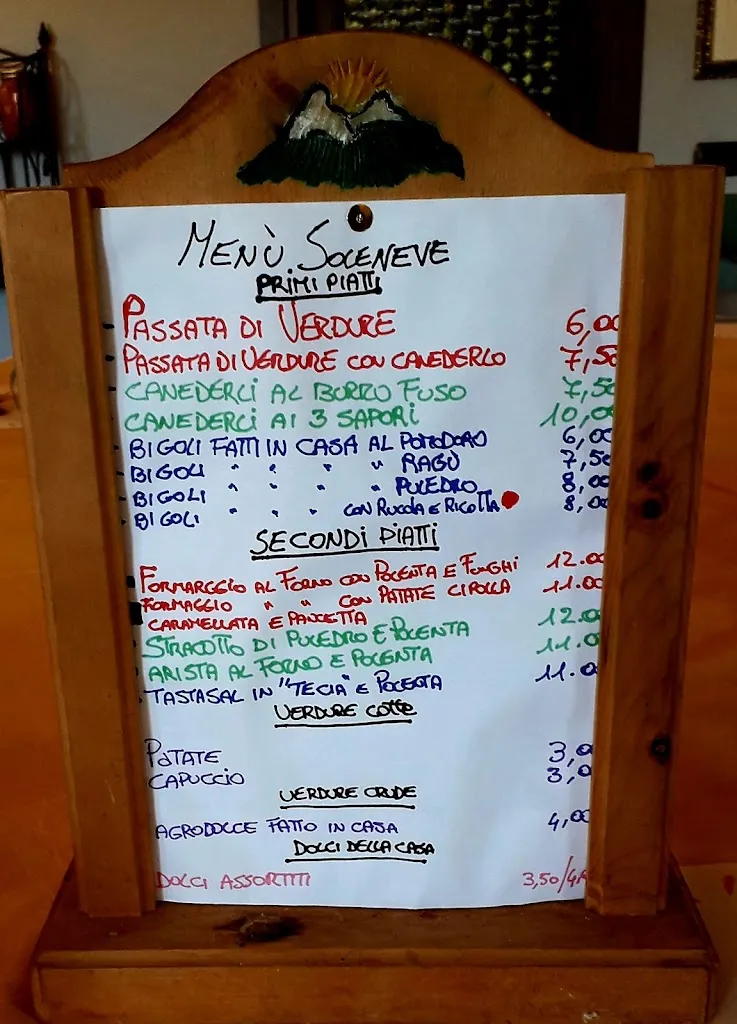 MENÙ SOLENEVE
PRIMI PIATTI
- PASSATA DI VERDURE 6,00
- PASSATA DI VERDURE CON CANEDERLO 7,50
- CANEDERLI AL BURRO FUSO 7,50
- CANEDERLI AI 3 SAPORI 10,00
- BIGOLI FATTI IN CASA AL POMODORO 6,00
- BIGOLI " " " " RAGÙ 7,50
- BIGOLI " " " " PULEDRO 8,00
- BIGOLI " " " CON RUCOLA E RICOTTA 8,00
SECONDI PIATTI
- FORMARGGIO AL FORNO CON POLENTA E FUNGHI 12.00
- FORMAGGIO " " CON PATATE CIPOLLA 11.00
CARAMELLATA E PANCETTA
- STRACOTTO DI PULEDRO E POLENTA 12.0
- ARISTA AL FORNO E POLENTA 11.0
- TASTASAL IN "TECIA" E POLENTA 11.00
VERDURE COTTE
PATATE 3,0
CAPUCCIO 3,0
VERDURE CRUDE
AGRODOLCE FATTO IN CASA 4,00
DOLCI DELLA CASA
DOLCI ASSORTITI 3,50/4,